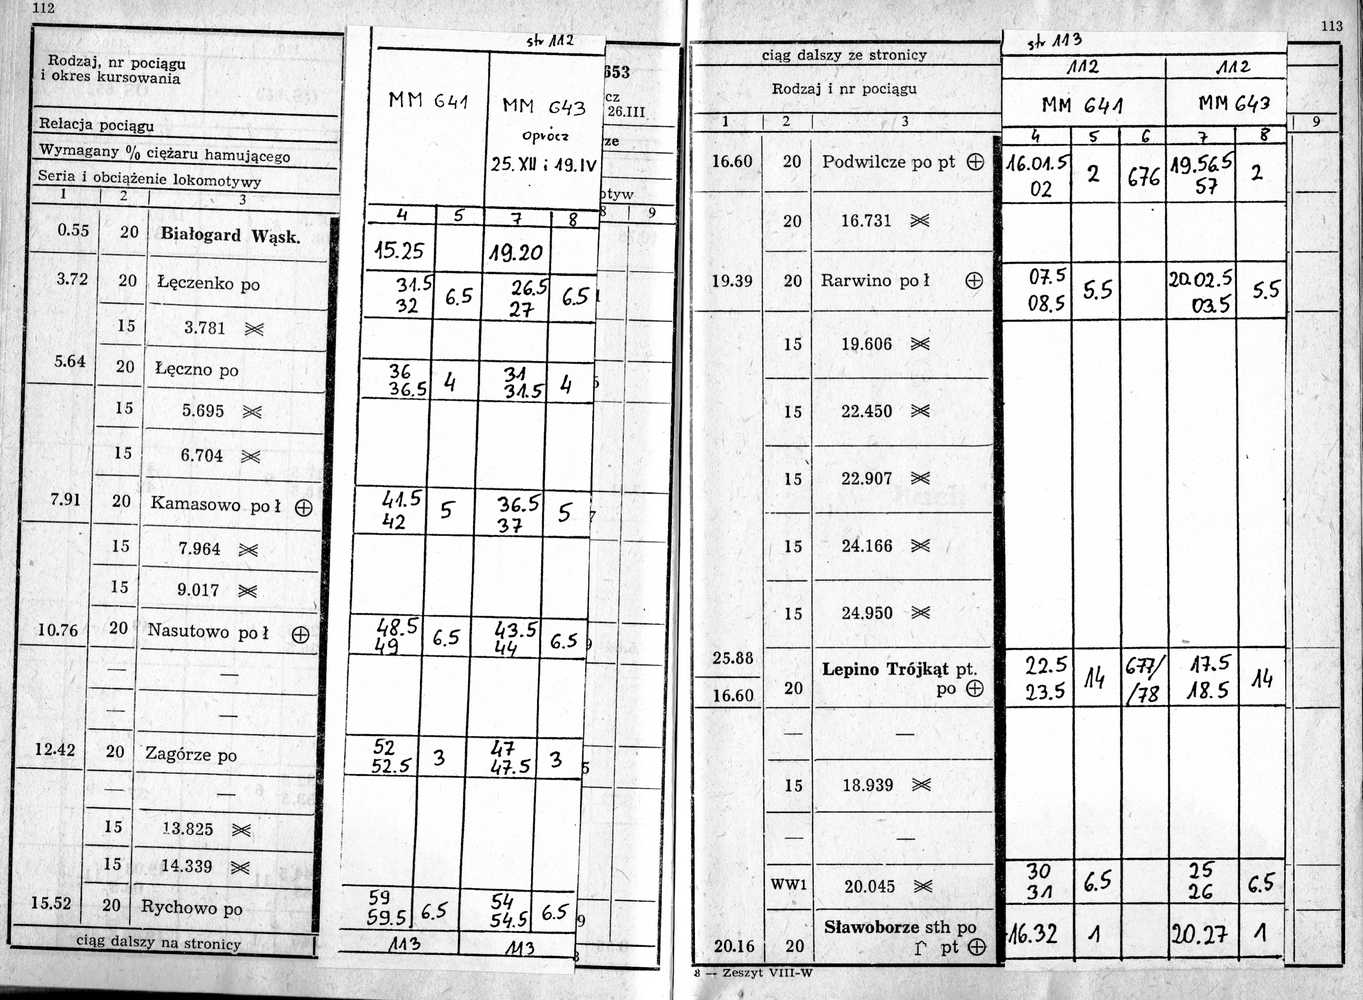 112
Rodzaj, nr pociągu
i okres kursowania
Relacja pociągu
Wymagany % ciężaru hamującego
Seria i obciążenie lokomotywy
1 2 3
str 112
MM 641 MM 643
oprócz
25.XII i 19.IV
4 5 7 8
653
cz
26.III
ze
otyw
8 9
0.55 20 Białogard Wąsk. 15.25 19.20
3.72 20 Łęczenko po 31.5 32 6.5 26.5 27 6.5
15 3.781
5.64 20 Łęczno po 36 36.5 4 31 31.5 4
15 5.695
15 6.704
7.91 20 Kamasowo po ł 41.5 42 5 36.5 37 5
15 7.964
15 9.017
10.76 20 Nasutowo po ł 48.5 49 6.5 43.5 44 6.5
— —
— —
12.42 20 Zagórze po 52 52.5 3 47 47.5 3
— —
15 13.825
15 14.339
15.52 20 Rychowo po 59 59.5 6.5 54 54.5 6.5
ciąg dalszy na stronicy 113 113
113
ciąg dalszy ze stronicy
Rodzaj i nr pociągu
1 2 3
str 113
112 112
MM 641 MM 643
4 5 6 7 8
9
16.60 20 Podwilcze po pt ⊕ 16.01.5 02 2 676 19.56.5 57 2
20 16.731
19.39 20 Rarwino po ł ⊕ 07.5 08.5 5.5 20.02.5 03.5 5.5
15 19.606
15 22.450
15 22.907
15 24.166
15 24.950
25.88 Lepino Trójkąt pt. 22.5 14 677/ 17.5 14
16.60 20 po ⊕ 23.5 /78 18.5
— —
15 18.939
— —
WW1 20.045 30 31 6.5 25 26 6.5
Sławoborze sth po 16.32 1 20.27 1
20.16 20 pt ⊕
8 — Zeszyt VIII-W